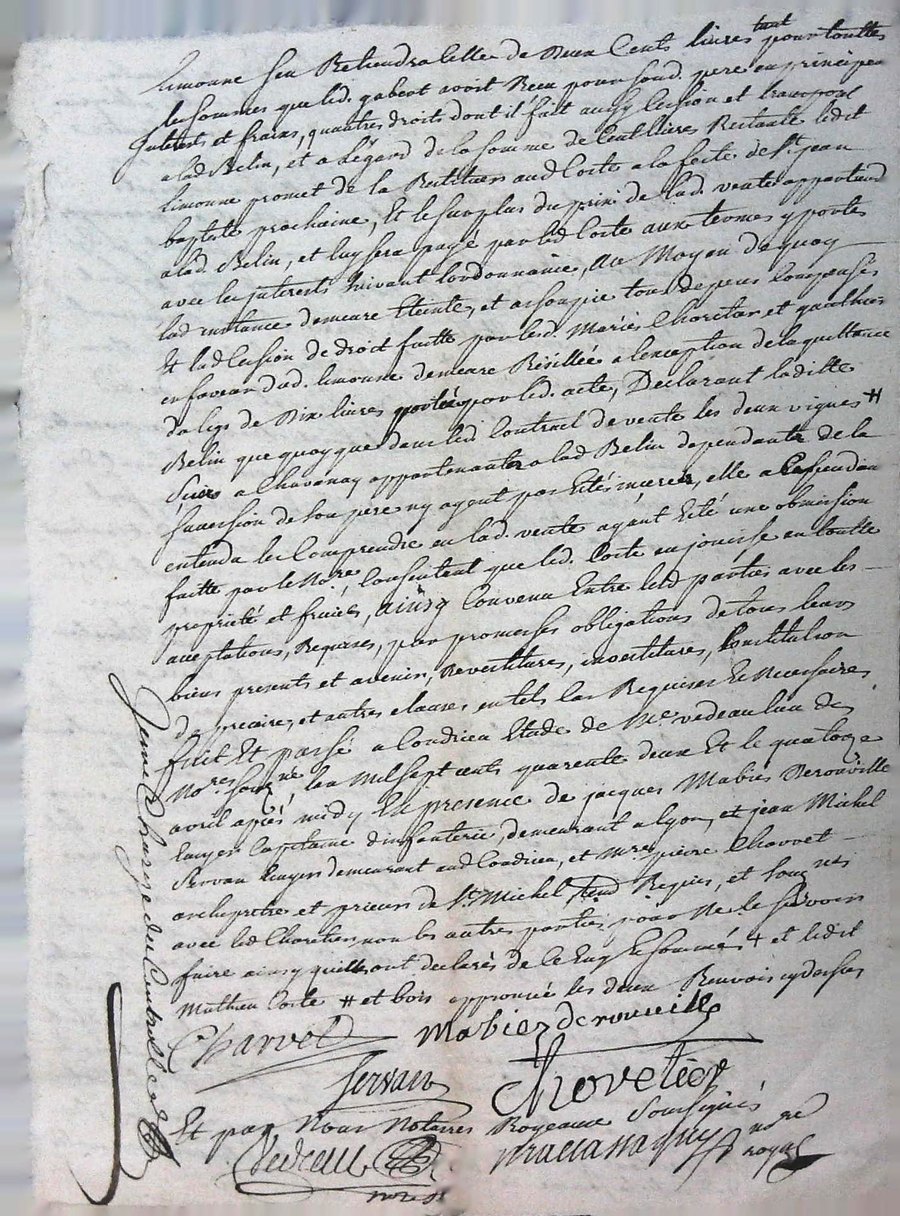 limonne sen Retiendra celle de Deux Cents livres tant pour touttes
les sommes que led. gabent avoit Reçu pour sond. pere en principeu
Interests et fraix, quautres droits dont il fait aussy Cession et transport
a lad Belin, et a Légard de la somme de Cent livres Restante ledit
limonne promet de la Restituer aud Coste a la feste de St. jean
baptiste prochaine, Et le surplus du prix de lad. vente appartiend
a lad. Belin, et luy sera payé par led Coste aux termes y portés
avec les Interests suivant lordonnance, Au Moyen de quoy
lad instance demeure Eteinte, et assoupie tous depens Compensés
Et lad Cession de droit faitte par lesd. Mariés Choretier et gaulthier
en faveur dud. limonne demeure Résillée a lexception de la quittance
du legs de Dix livres portée par led. acte, Declarant laditte
Belin que quoy que dans led Contract de vente les deux vignes #
Scizes a Chavanay appartenantes a lad Belin dependante de la
succession de son pere ny ayent pas Etés inserés, elle a Cependant
entendu les Comprendre en lad. vente ayant Eté une obmission
faitte par le Nore, Consentent que led. Coste en jouisse en toutte
propriété et fruits, ainsy Convenu Entre lesd parties avec les
aceptations, Requises, par promesses obligations de tous leurs
biens presents et avenir, Revestiture, investiture, Constitution
de precaire, et autres clauses en tels Cas Requises Et Necessaires
fait Et passé a Condrieu Etude de Me. vedeau lun des
Nores soussignés, lan Mil sept cents quarente deux Et le quatorze
avril après midy En presence de jacques Mabiés Derouville
Ecuyer Capitaine dinfanterie, demeurant a lyon, et jean Michel
Servan Ecuyer demeurant aud Condrieu, et Mre pierre Charvet
archipretre et prieur de St. Michel, Requis, et soussignés
avec led Choretier non les autres parties pour Ne le sçavoir
faire ainsy quils ont declarés de Ce Enquis Et sommés + et ledit
Mathieu Coste # et bois approuvé les deux Renvois cy dessus
Charvet
Mabiez de rouville
Servan
Choretier
Et par Nous Notaires Royeaux Soussignés
Vedeau
nore
nore
royal